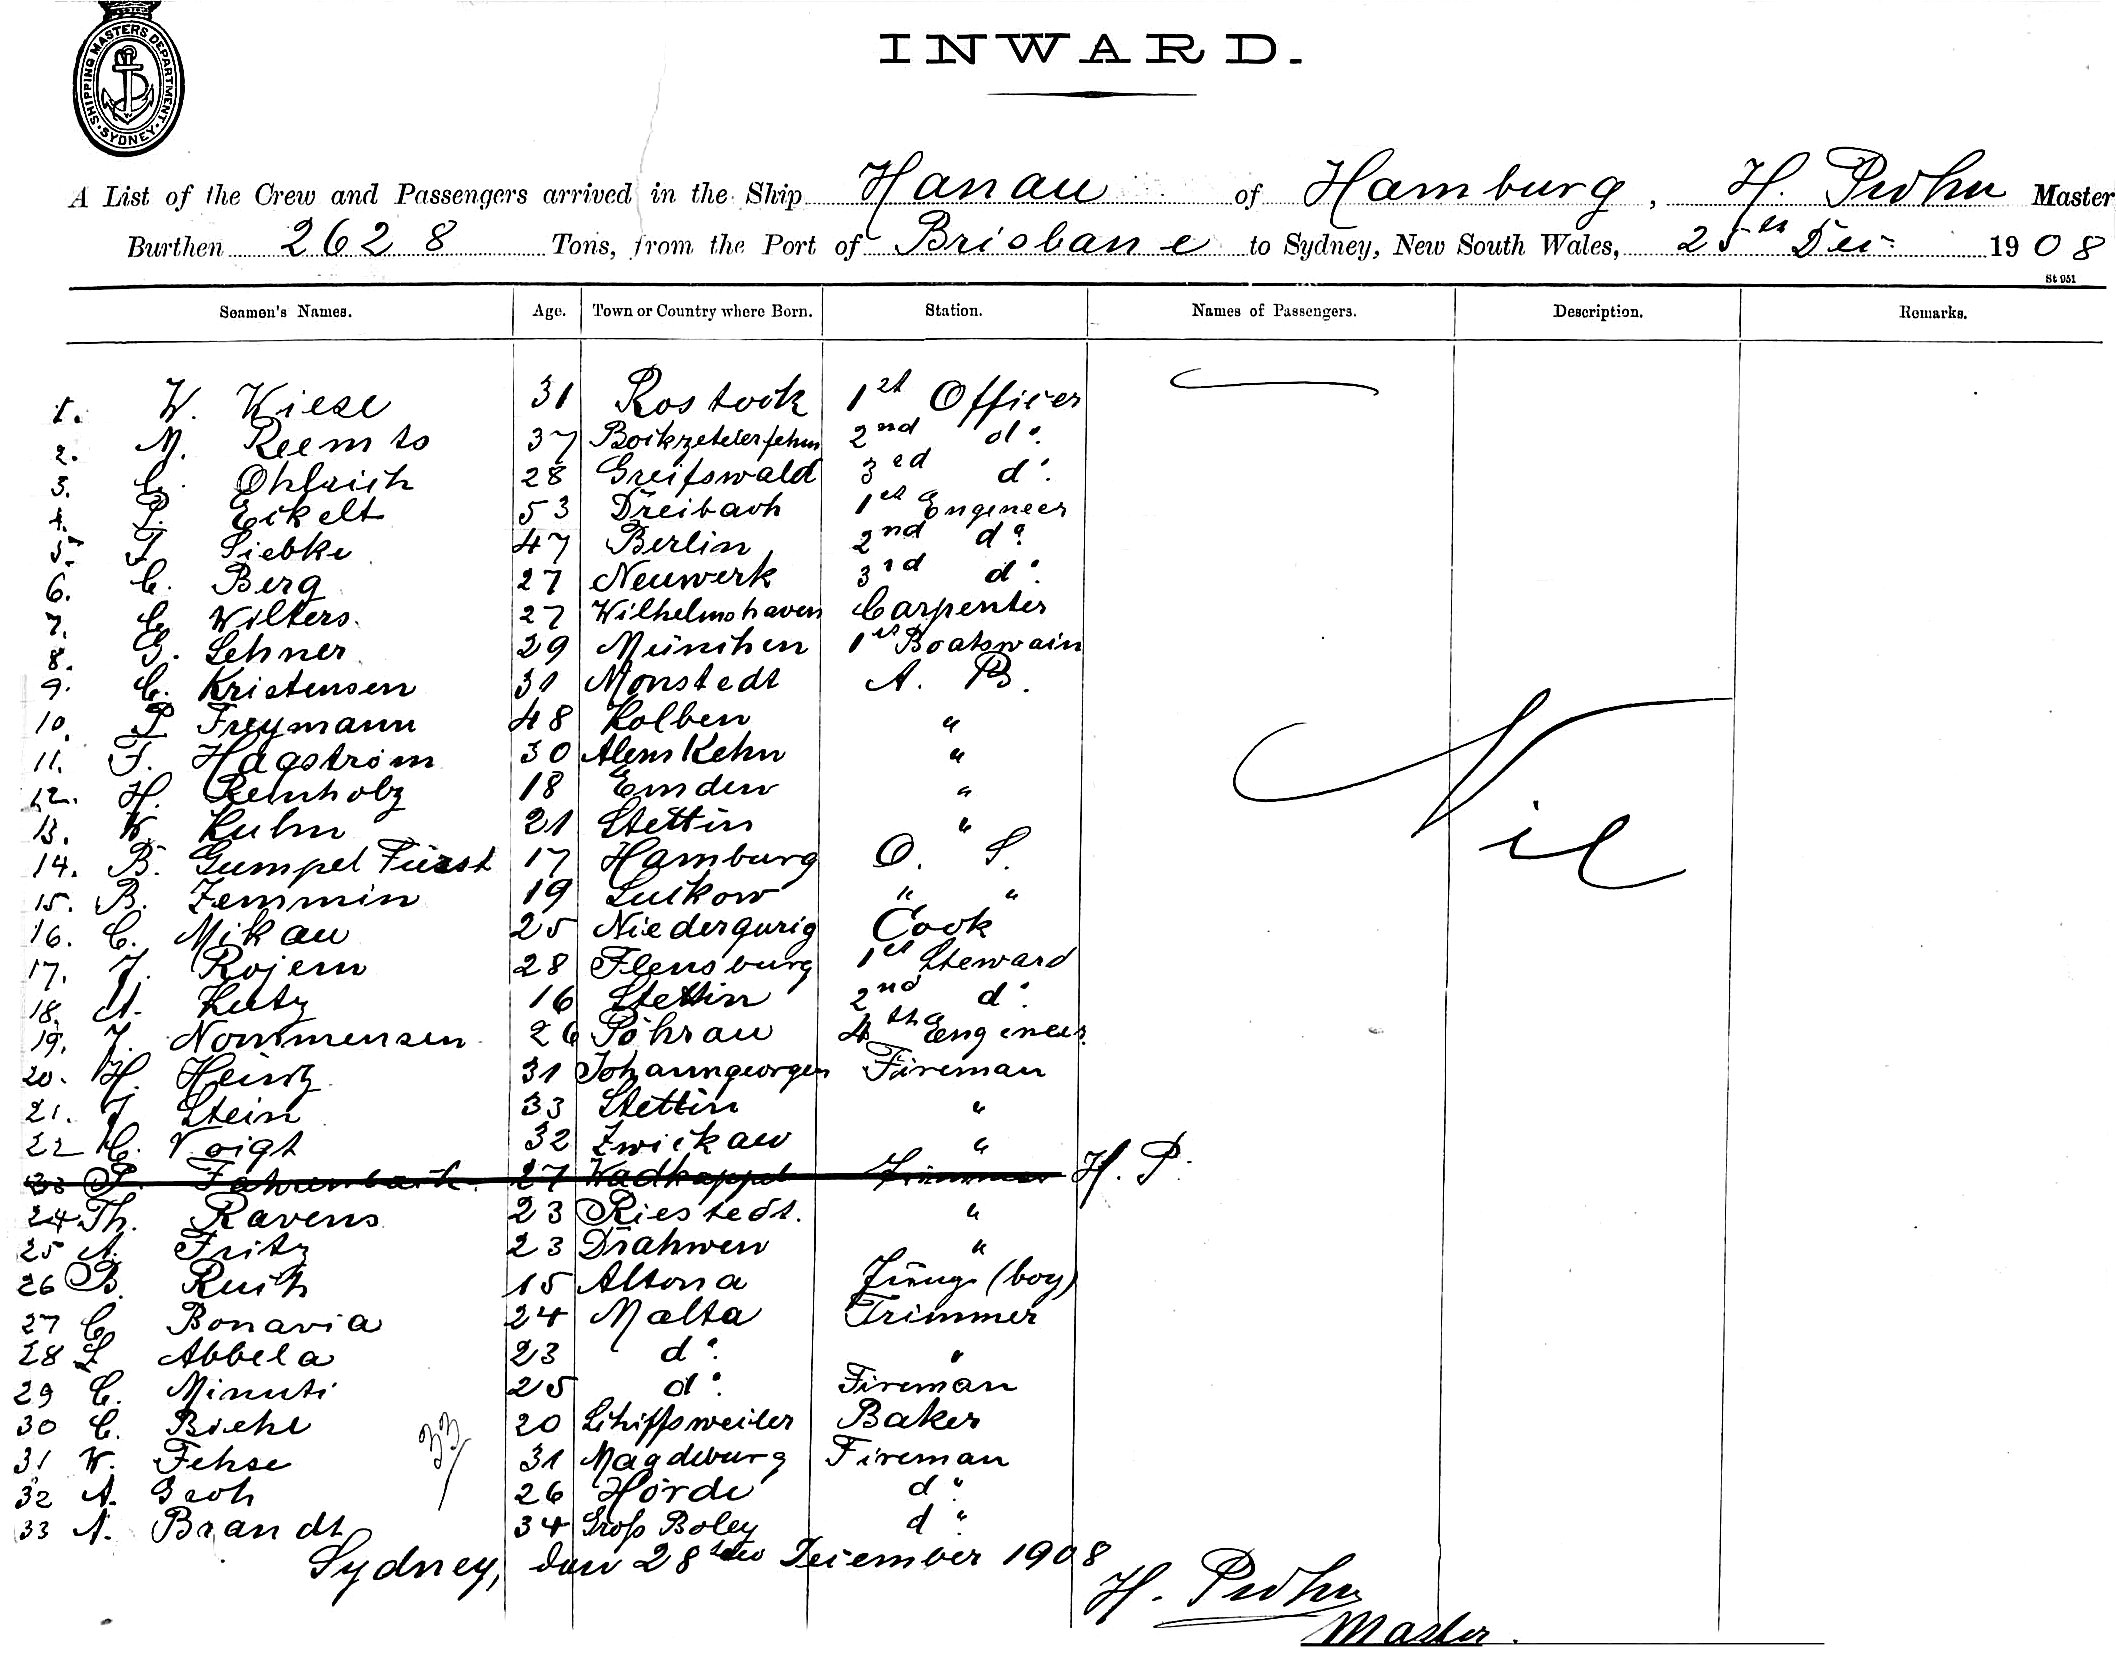 SHIPPING MASTERS DEPARTMENT · SYDNEY ·
INWARD.
A List of the Crew and Passengers arrived in the Ship Hanau of Hamburg, H. Prohn Master
Burthen 2628 Tons, from the Port of Brisbane to Sydney, New South Wales, 25th Dec 1908
St 951
Seamen's Names. Age. Town or Country where Born. Station. Names of Passengers. Description. Remarks.
1. W. Wiese 31 Rostock 1st Officer
2. M. Reemts 37 Boikzetelerfehn 2nd do.
3. C. Ohlrich 28 Greifswald 3rd do.
4. P. Eickelt 53 Dreibach 1st Engineer
5. F. Siebke 47 Berlin 2nd do
6. C. Berg 27 Neuwerk 3rd do.
7. C. Wilters. 27 Wilhelmshaven Carpenter
8. G. Lehner 29 München 1st Boatswain
9. C. Kristensen 31 Monstedt A. B.
10. P. Freymann 48 Kolben "
11. F. Hagström 30 "
12. H. Remholz 18 Emden "
13. W. Kuhn 21 Stettin "
14. B. Gumpel Fürst 17 Hamburg O. S.
15. B. Zemmin 19 Luckow " "
16. C. Mikau 25 Niedergurig Cook
17. J. Rojem 28 Flensburg 1st Steward
18. A. Lutz 16 Stettin 2nd do.
19. J. Nommensen 26 Pöhrau 4th Engineer
20. H. Heintz 31 Johanngeorgen Fireman
21. J. Stein 33 Stettin "
22 C. Voigt 32 Zwickau "
23 P. Fahrenbach. 27 Wadkappel Trimmer H. P.
24 Th. Ravens 23 Riestedt. "
25 A. Fritz 23 Drahwen "
26 B. Ruich 15 Altona Jüng. (boy)
27 C. Bonavia 24 Malta Trimmer
28 L Abbela 23 do. "
29 C. Minuti 25 do. Fireman
30 C. Biehl 20 Schiffsweiler Baker
31 W. Fehse 31 Magdeburg Fireman
32 A. Groh 26 Hörde do
33 A. Brandt 34 Groß Boley do
33/
Nil
Sydney, den 28ten Dezember 1908
H. Prohn
Master.